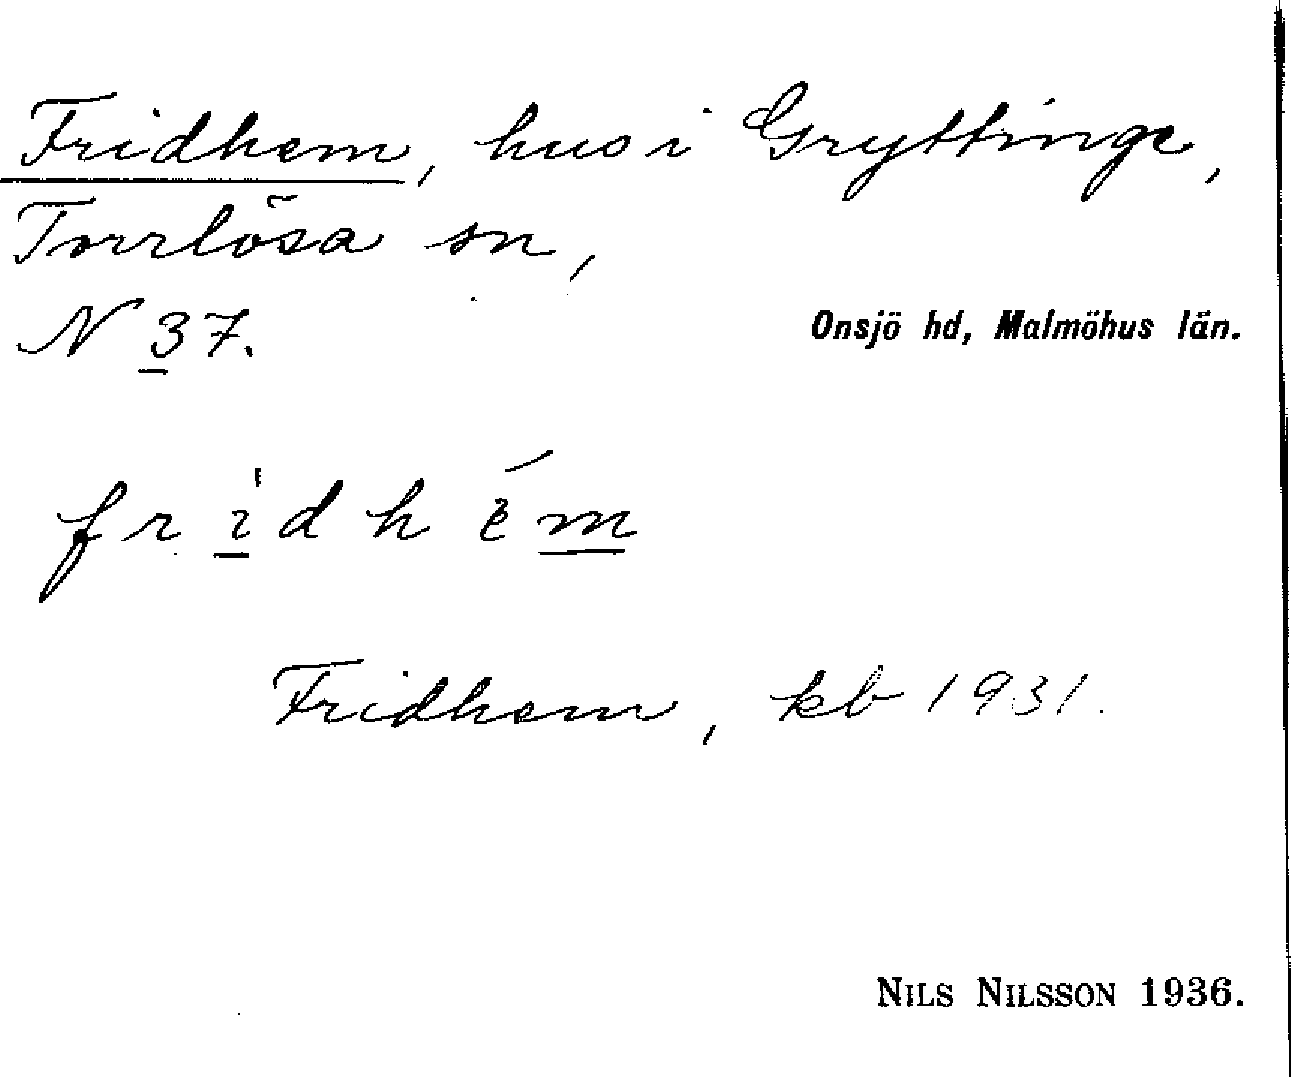 Fridhem, hus i Gryttinge,
Torrlösa sn,
N 37.
Onsjö hd, Malmöhus län.
fridhém
Fridhem, kb 1931.
NILS NILSSON 1936.